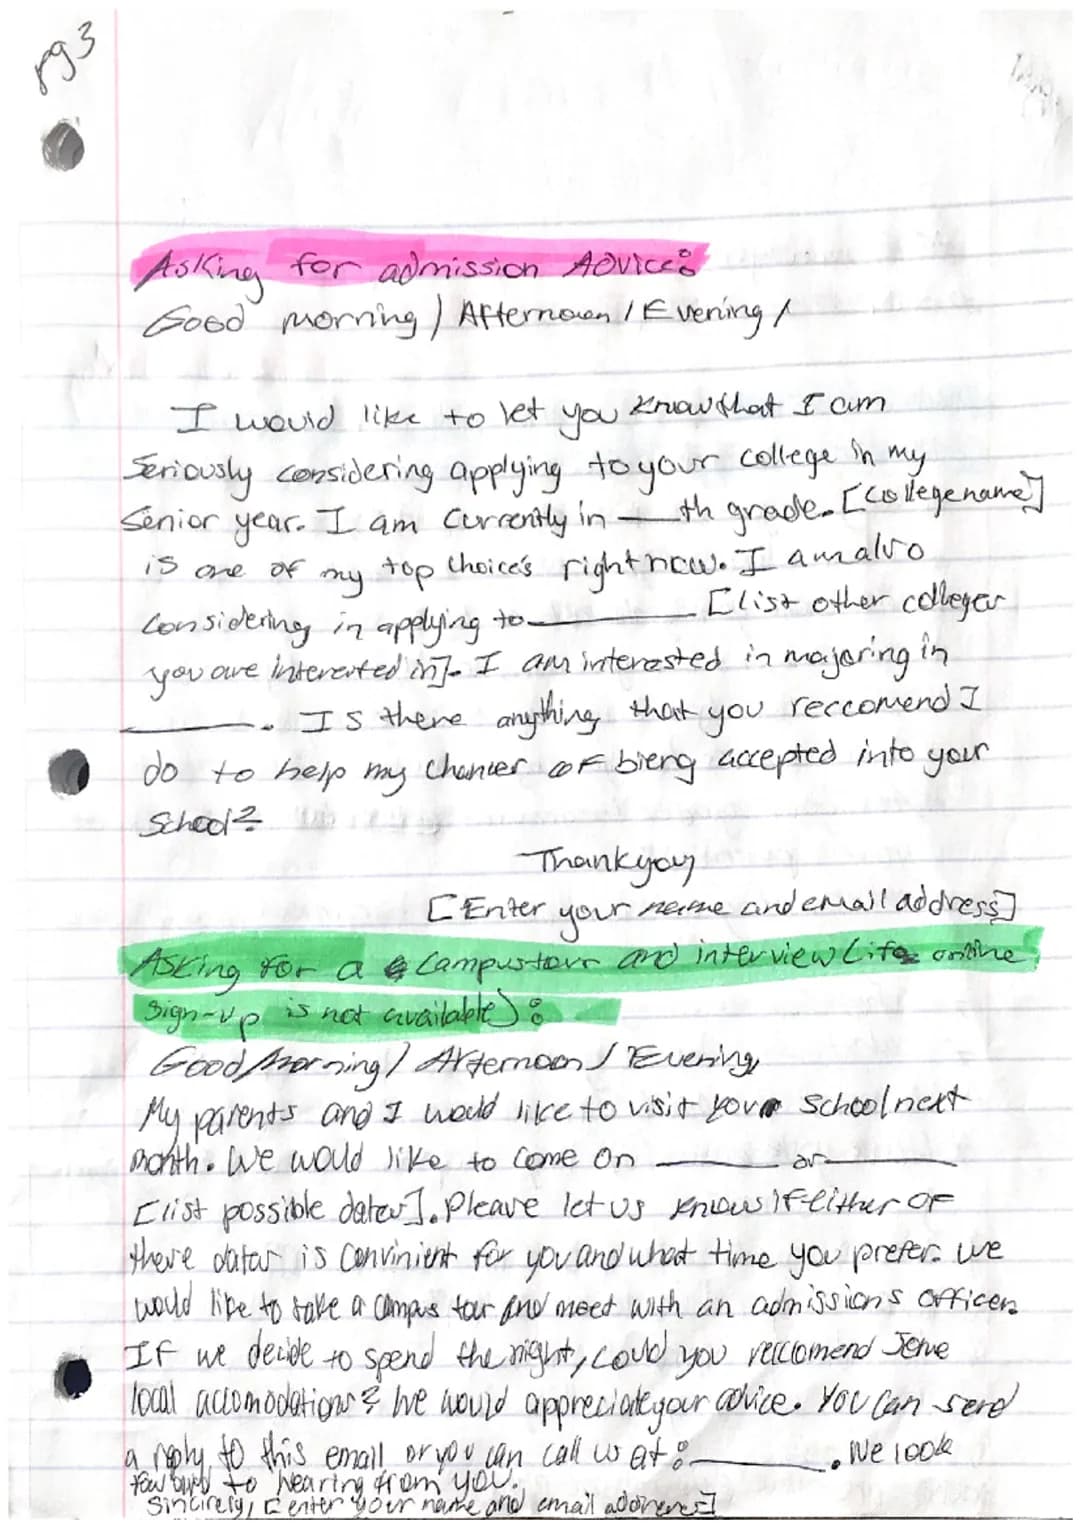 pg 3
Asking for admission Advice:
Good morning / Afternoon / Evening /
I would like to let you know that I am
seriously considering applying to your college in my
Senior year. I am currently in ___th grade. [College name]
is one of my top choice's right now. I am also
considering in applying to ______. [list other colleges
you are interested in]. I am interested in majoring in
______. Is there anything that you reccomend I
do to help my chances of bieng accepted into your
School?
Thank you
[Enter your name and email address]
Asking for a campus tour and interview (if online
sign-up is not available):
Good Morning / Afternoon / Evening,
My parents and I would like to visit your school next
month. We would like to come on ______ or ______
[list possible dates]. Please let us know if either of
these dates is convinient for you and what time you prefer. We
would like to take a campus tour and meet with an admissions officer.
If we decide to spend the night, could you reccomend some
local accomodations? We would appreciate your advice. You can send
a reply to this email or you can call us at: ______. We look
foward to hearing from you.
Sincirely, [enter your name and email address]